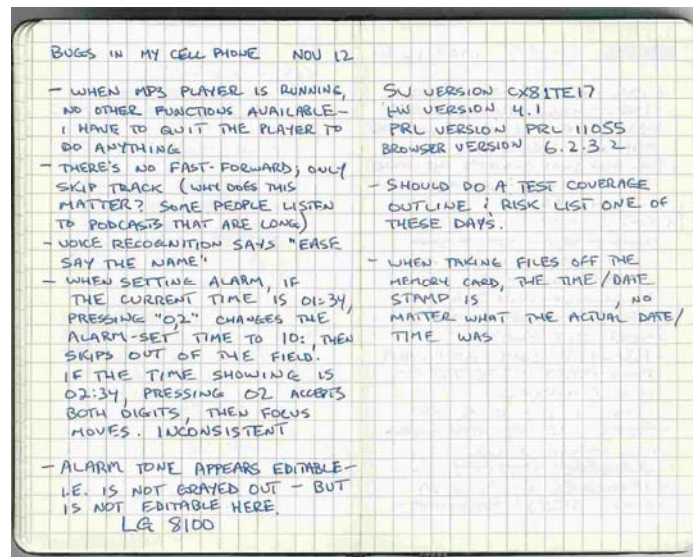 BUGS IN MY CELL PHONE NOV 12
- WHEN MP3 PLAYER IS RUNNING,
NO OTHER FUNCTIONS AVAILABLE-
I HAVE TO QUIT THE PLAYER TO
DO ANYTHING
- THERE'S NO FAST-FORWARD; ONLY
SKIP TRACK (WHY DOES THIS
MATTER? SOME PEOPLE LISTEN
TO PODCASTS THAT ARE LONG)
- VOICE RECOGNITION SAYS "EASE
SAY THE NAME"
- WHEN SETTING ALARM, IF
THE CURRENT TIME IS 01:34,
PRESSING "0,2" CHANGES THE
ALARM-SET TIME TO 10:, THEN
SKIPS OUT OF THE FIELD.
IF THE TIME SHOWING IS
02:34, PRESSING 02 ACCEPTS
BOTH DIGITS, THEN FOCUS
MOVES. INCONSISTENT
- ALARM TONE APPEARS EDITABLE-
I.E. IS NOT GRAYED OUT - BUT
IS NOT EDITABLE HERE.
LG 8100
SW VERSION CX81TE17
HW VERSION 4.1
PRL VERSION PRL 11055
BROWSER VERSION 6.2.3.2
- SHOULD DO A TEST COVERAGE
OUTLINE & RISK LIST ONE OF
THESE DAYS.
- WHEN TAKING FILES OFF THE
MEMORY CARD, THE TIME/DATE
STAMP IS , NO
MATTER WHAT THE ACTUAL DATE/
TIME WAS